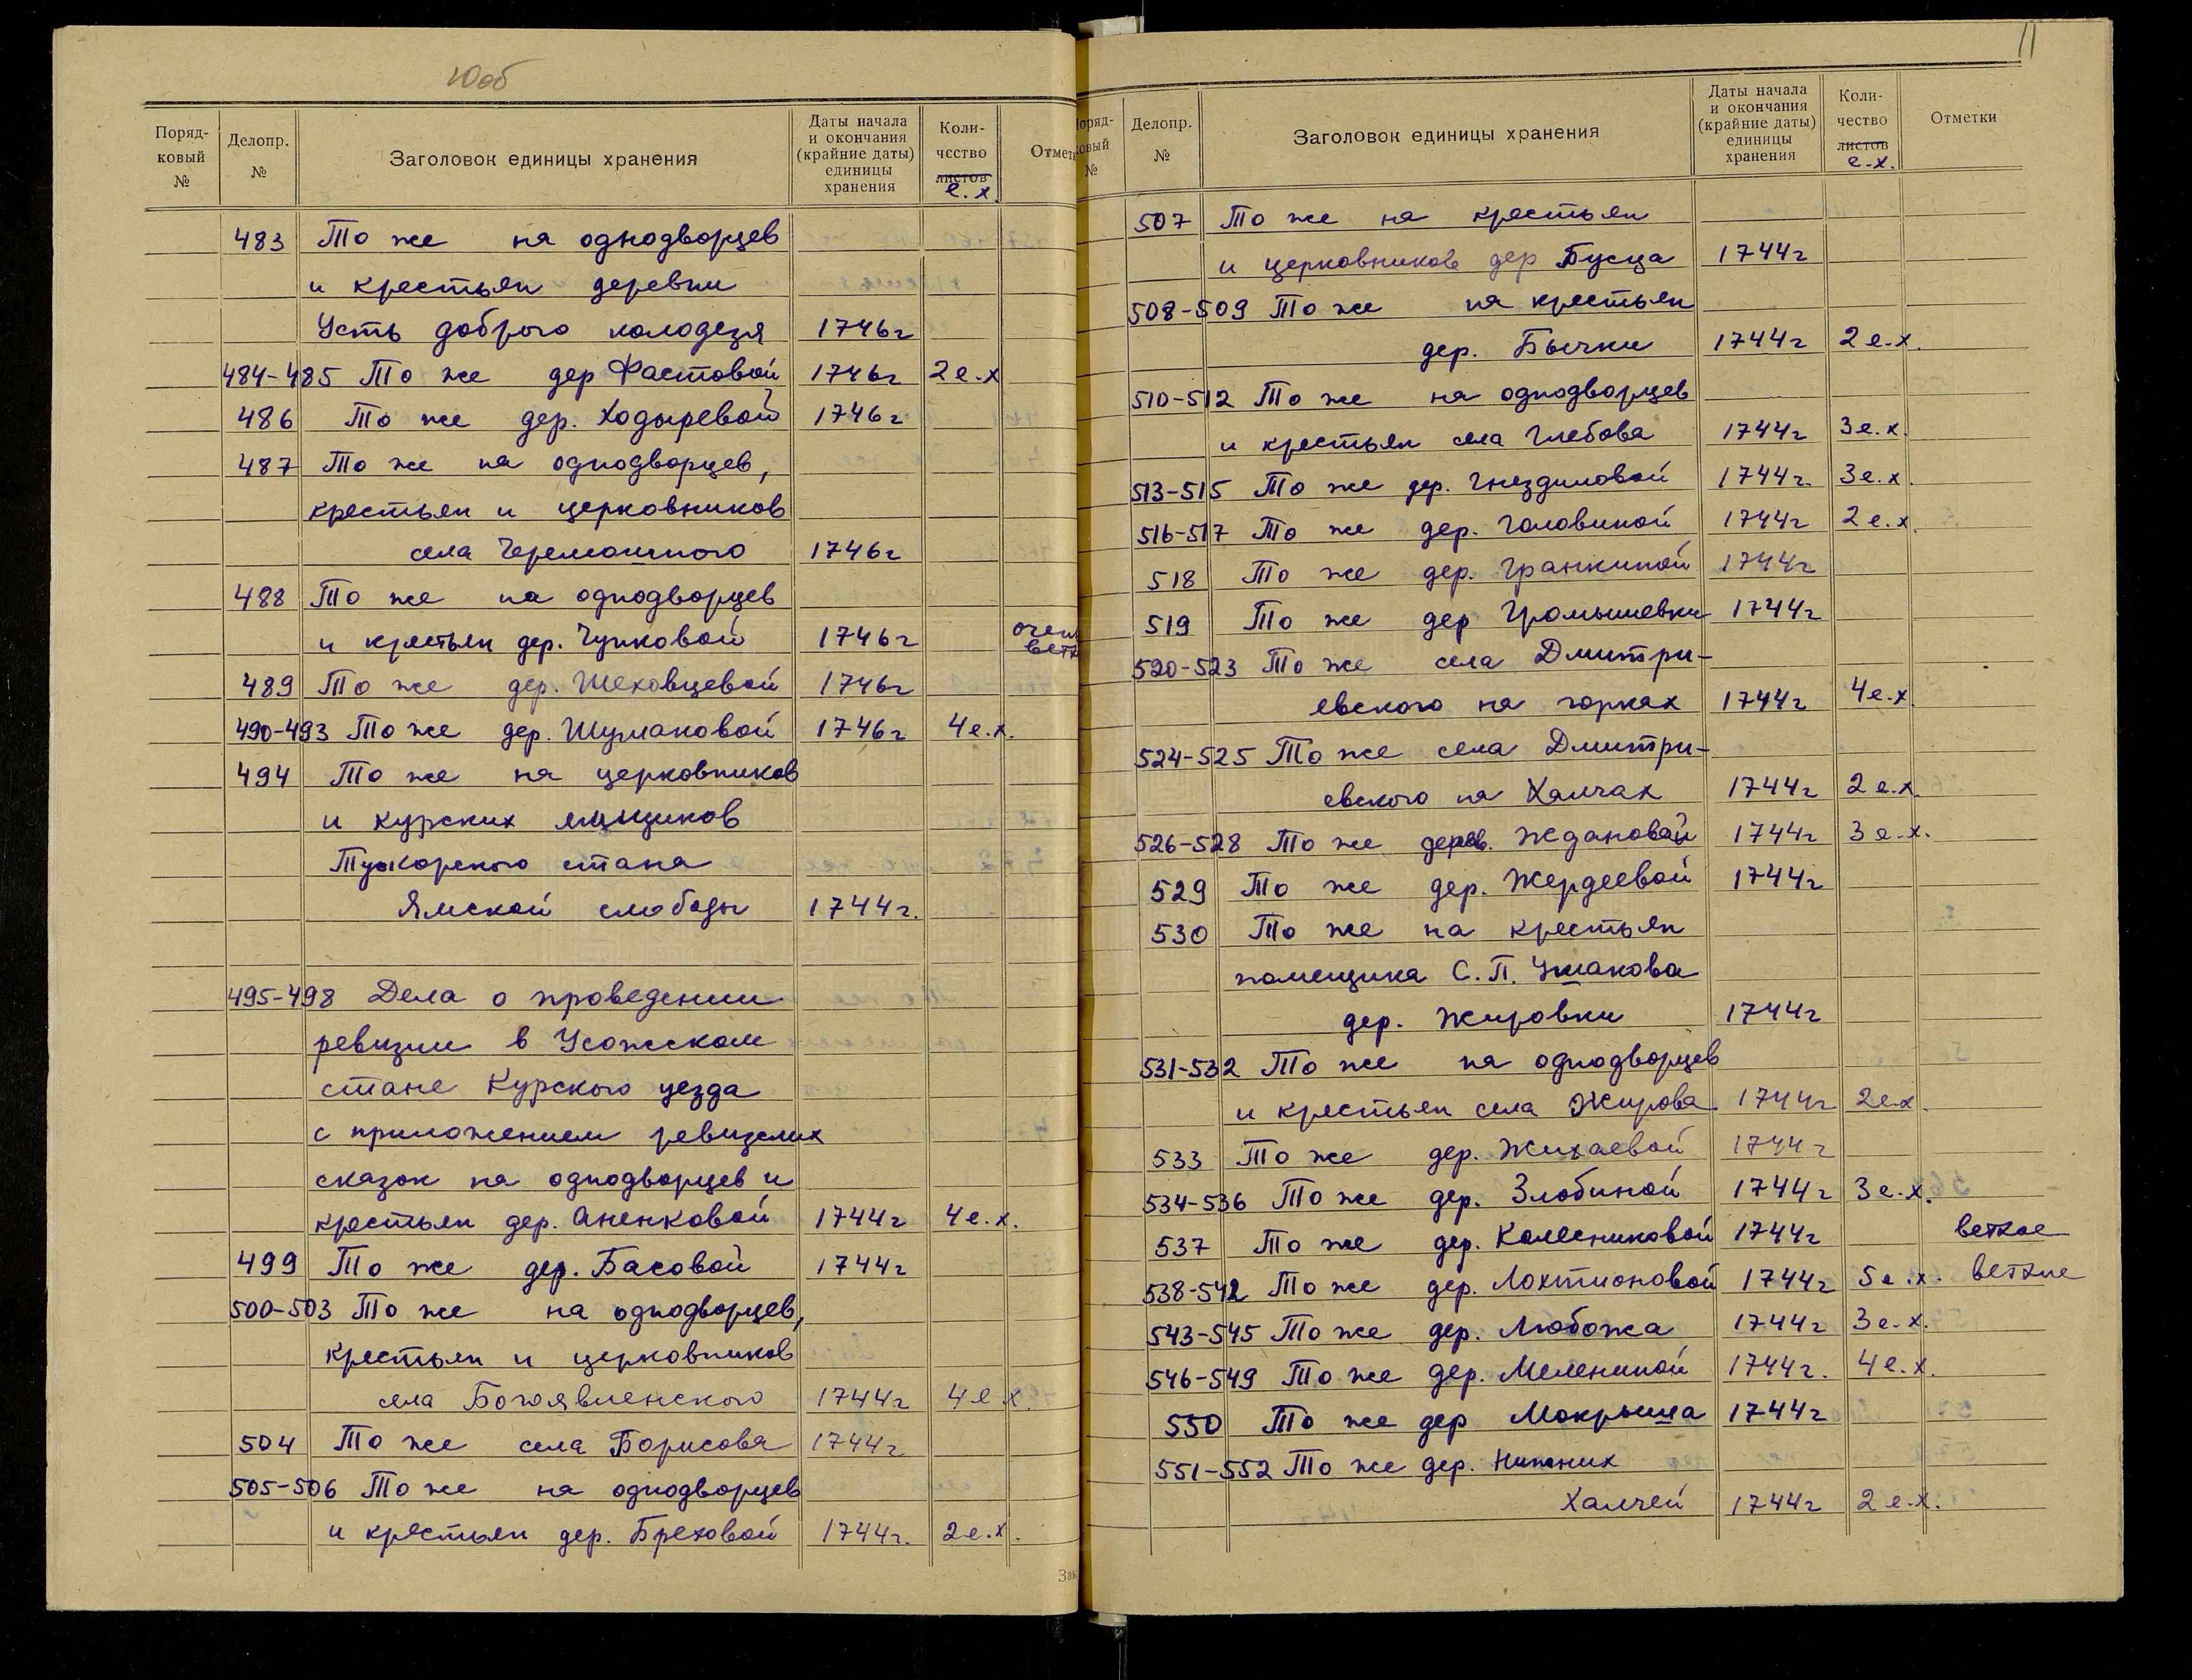 10об
Поряд-
ковый
№
Делопр.
№
Заголовок единицы хранения
Даты начала
и окончания
(крайние даты)
единицы
хранения
Коли-
чество
листов
е.х.
Отмет
483 То же на однодворцев
и крестьян деревни
Усть доброго колодезя 1746г
484-485 То же дер Фастовой 1746г 2 е.х
486 То же дер. Ходыревой 1746г
487 То же на однодворцев,
крестьян и церковников
села Черемошного 1746г
488 То же на однодворцев
и крестьян дер. Чупковой 1746г очен
ветх
489 То же дер. Шеховцевой 1746г
490-493 То же дер. Шумаковой 1746г 4 е.х.
494 То же на церковников
и курских ямщиков
Тускорского стана
Ямской слободы 1744г.
495-498 Дела о проведении
ревизии в Усожском
стане Курского уезда
с приложением ревизских
сказок на однодворцев и
крестьян дер. Аненковой 1744г 4 е.х.
499 То же дер. Басовой 1744г
500-503 То же на однодворцев,
крестьян и церковников
села Богоявленского 1744г 4 е х.
504 То же села Борисова 1744г
505-506 То же на однодворцев
и крестьян дер. Бреховой 1744г. 2 е.х.
Зак
11
оряд-
овый
№
Делопр.
№
Заголовок единицы хранения
Даты начала
и окончания
(крайние даты)
единицы
хранения
Коли-
чество
листов
е.х.
Отметки
507 То же на крестьян
и церковников дер Бусца 1744г
508-509 То же на крестьян
дер. Бычки 1744г 2 е.х.
510-512 То же на однодворцев
и крестьян села Глебова 1744г 3 е.х.
513-515 То же дер. Гнездиловой 1744г. 3 е.х.
516-517 То же дер. Головиной 1744г 2 е.х.
518 То же дер. Гранкиной 1744г
519 То же дер Громышевки 1744г
520-523 То же села Дмитри-
евского на горках 1744г 4 е.х.
524-525 То же села Дмитри-
евского на Халчах 1744г 2 е.х.
526-528 То же дерев. Ждановой 1744г 3 е.х.
529 То же дер. Жердеевой 1744г
530 То же на крестьян
помещика С. П. Ушакова
дер. Жировки 1744г
531-532 То же на однодворцев
и крестьян села Жирова 1744г 2 е.х.
533 То же дер. Жихаевой 1744г
534-536 То же дер. Злобиной 1744г 3 е.х.
537 То же дер. Колесниковой 1744г ветхое
538-542 То же дер. Лохтионовой 1744г 5 е.х. ветхие
543-545 То же дер. Любожа 1744г 3 е.х.
546-549 То же дер. Мелениной 1744г. 4 е.х.
550 То же дер Мокрыша 1744г
551-552 То же дер. Нижних
Халчей 1744г 2 е.х.